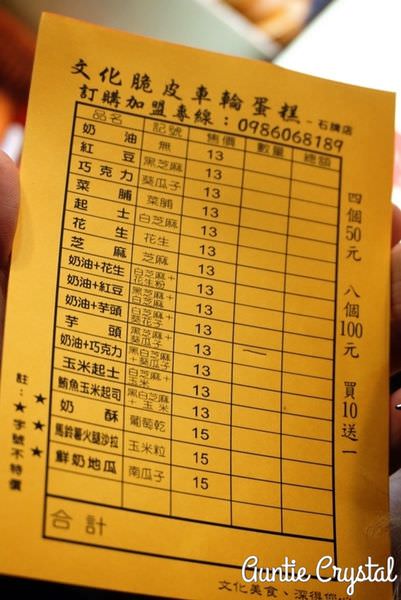 文化脆皮車輪蛋糕 - 石牌店
訂購加盟專線：0986068189
品名 記號 售價 數量 總額
奶油 無 13
紅豆 黑芝麻 13
巧克力 葵瓜子 13
菜脯 菜脯 13
起士 白芝麻 13
花生 花生 13
芝麻 芝麻 13
奶油+花生 白芝麻+花生粉 13
奶油+紅豆 黑芝麻+白芝麻 13
奶油+芋頭 白芝麻+葵花子 13
芋頭 黑白芝麻 13
奶油+巧克力 黑白芝麻+葵瓜子 13
玉米起士 白芝麻+玉米 13
鮪魚玉米起司 黑白芝麻+玉米 13
奶酥 葡萄乾 15
馬鈴薯火腿沙拉 玉米粒 15
鮮奶地瓜 南瓜子 15
合計
四個50元 八個100元 買10送一
註：★字號不特價
★ ★ ★
文化美食、深得你
Auntie Crystal